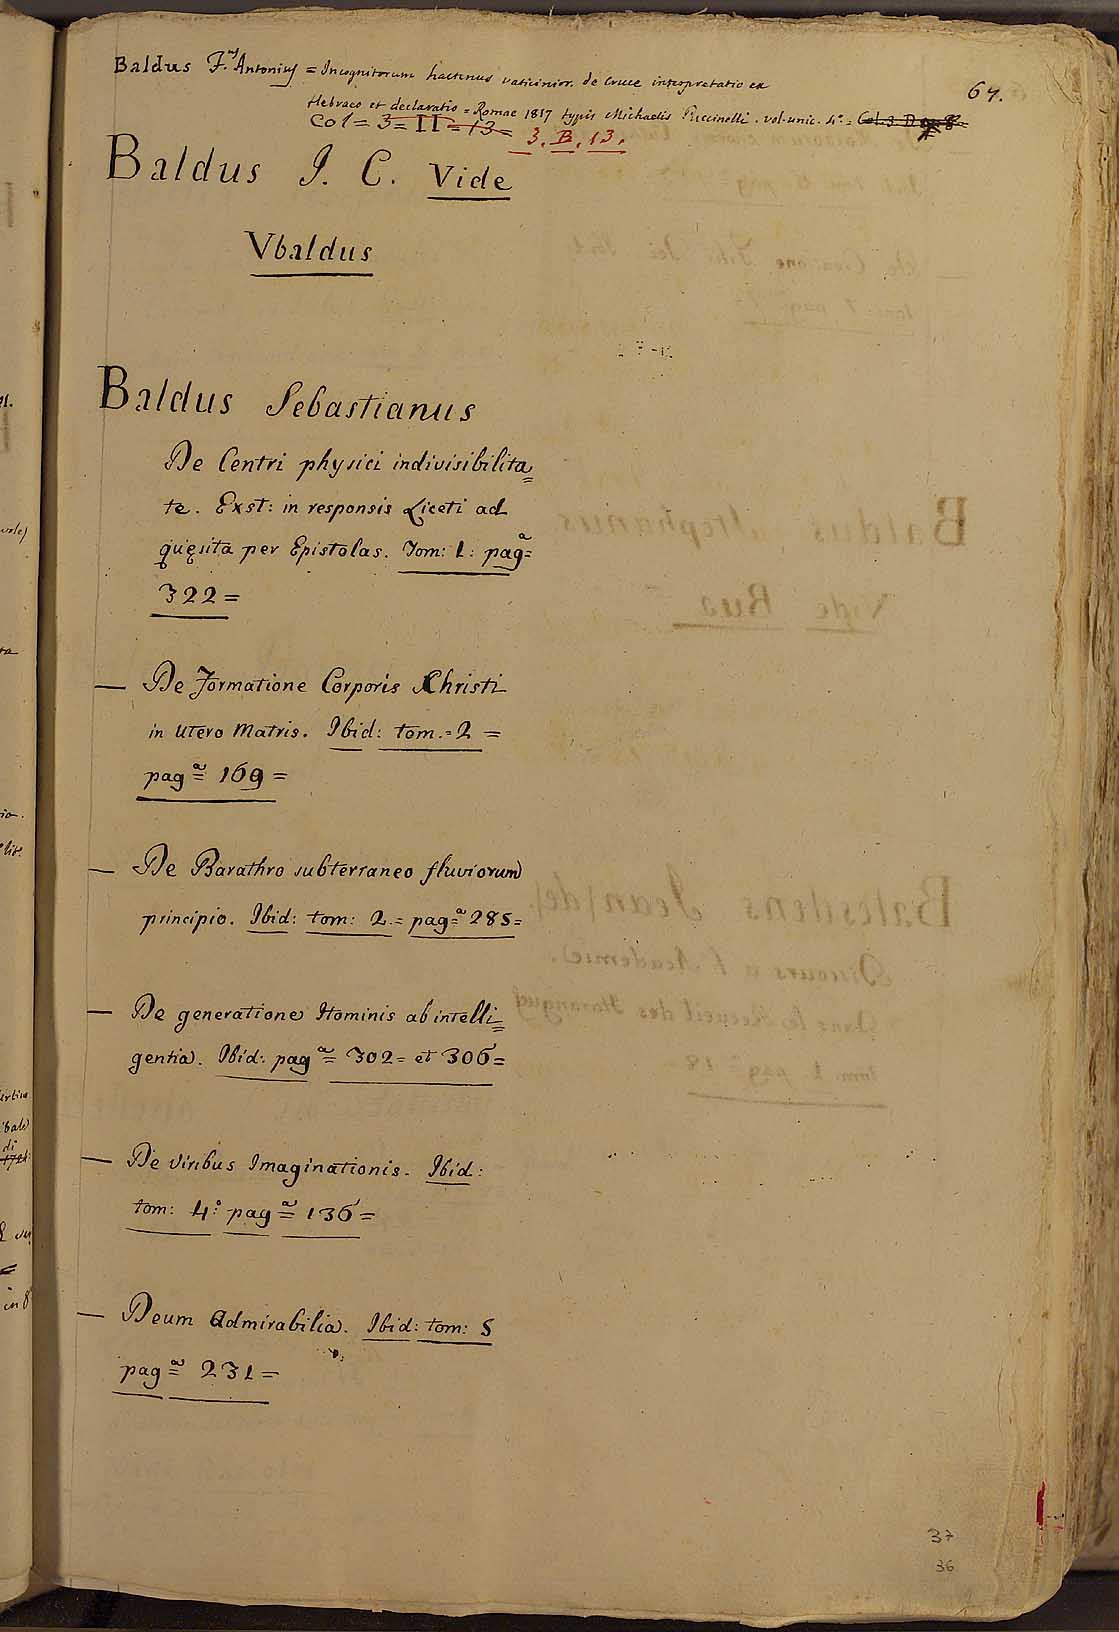 67.
Baldus F.cus Antonius = Incognitorum hactenus vaticinior. de Cruce interpretatio ex
Hebraeo et declaratio = Romae 1817 typis Michaelis Puccinelli . vol. unic. 4°. =
Col = 3 = II = 13 =
3. B. 13.
Baldus J. C. Vide
Vbaldus
Baldus Sebastianus
De Centri physici indivisibilita=
te. Exst: in responsis Liceti ad
quęsita per Epistolas. Tom: 1: pagª=
322 =
— De Formatione Corporis Christi
in utero Matris. Ibid: tom. = 2 =
pagª= 169 =
— De Barathro subterraneo fluviorum
principio. Ibid: tom: 2. = pag=ª 285=
— De generatione Hominis ab intelli=
gentia. Ibid: pagª= 302 = et 306 =
— De viribus Imaginationis. Ibid:
tom: 4° pagª= 136 =
— Deum Admirabilia. Ibid: tom: 5
pagª= 231 =
37
36